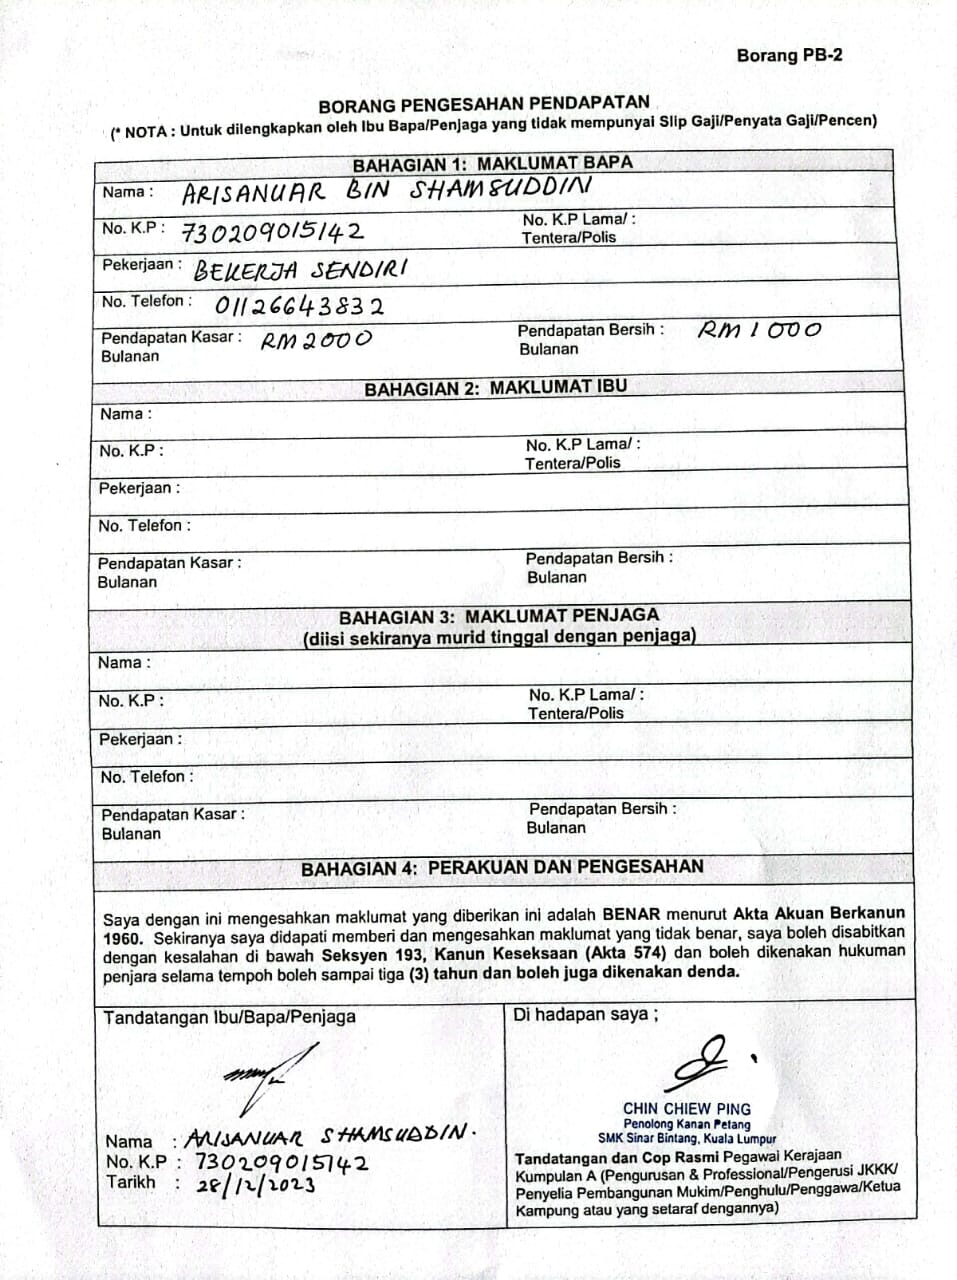 Borang PB-2
BORANG PENGESAHAN PENDAPATAN
(* NOTA : Untuk dilengkapkan oleh Ibu Bapa/Penjaga yang tidak mempunyai Slip Gaji/Penyata Gaji/Pencen)
BAHAGIAN 1: MAKLUMAT BAPA
Nama : ARISANUAR BIN SHAMSUDDIN
No. K.P : 730209015142 No. K.P Lama/ :
Tentera/Polis
Pekerjaan : BEKERJA SENDIRI
No. Telefon : 01126643832
Pendapatan Kasar : RM2000 Pendapatan Bersih : RM1000
Bulanan Bulanan
BAHAGIAN 2: MAKLUMAT IBU
Nama :
No. K.P : No. K.P Lama/ :
Tentera/Polis
Pekerjaan :
No. Telefon :
Pendapatan Kasar : Pendapatan Bersih :
Bulanan Bulanan
BAHAGIAN 3: MAKLUMAT PENJAGA
(diisi sekiranya murid tinggal dengan penjaga)
Nama :
No. K.P : No. K.P Lama/ :
Tentera/Polis
Pekerjaan :
No. Telefon :
Pendapatan Kasar : Pendapatan Bersih :
Bulanan Bulanan
BAHAGIAN 4: PERAKUAN DAN PENGESAHAN
Saya dengan ini mengesahkan maklumat yang diberikan ini adalah BENAR menurut Akta Akuan Berkanun
1960. Sekiranya saya didapati memberi dan mengesahkan maklumat yang tidak benar, saya boleh disabitkan
dengan kesalahan di bawah Seksyen 193, Kanun Keseksaan (Akta 574) dan boleh dikenakan hukuman
penjara selama tempoh boleh sampai tiga (3) tahun dan boleh juga dikenakan denda.
Tandatangan Ibu/Bapa/Penjaga
Nama : ARISANUAR SHAMSUDDIN.
No. K.P : 730209015142
Tarikh : 28/12/2023
Di hadapan saya ;
CHIN CHIEW PING
Penolong Kanan Petang
SMK Sinar Bintang, Kuala Lumpur
Tandatangan dan Cop Rasmi Pegawai Kerajaan
Kumpulan A (Pengurusan & Professional/Pengerusi JKKK/
Penyelia Pembangunan Mukim/Penghulu/Penggawa/Ketua
Kampung atau yang setaraf dengannya)